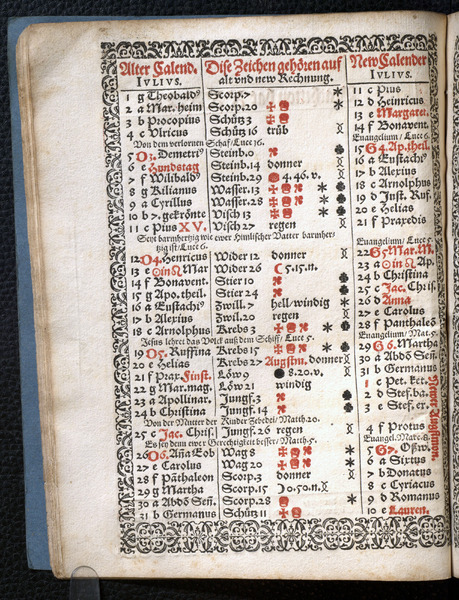 Alter Calend. Dise Zeichen gehören auf New Calender
IVLIVS. alt vnd new Rechnung. IVLIVS.
1 g Theobald Scorp. 7 11 c Pius
2 a Mar. heim Scorp. 20 12 d Heinricus
3 b Procopius Schütz 3 13 e Margaret.
4 c Vlricus Schütz 16 trüb 14 f Bonavent.
Von dem verlornen Schaf/Luc. 16. Evangelium/Luc. 6.
5 O3. Demetri Steinb. 0 15 G4. Ap. theil.
6 e Hundstag Steinb. 14 donner 16 a Eustachi
7 f Wilibald Steinb. 29 4.46.v. 17 b Alexius
8 g Kilianus Wasser. 13 18 c Arnolphus
9 a Cyrillus Wasser. 28 19 d Just. Ruf.
10 b 7. gekrönte Visch 13 20 e Helias
11 c Pius XV. Visch 27 regen 21 f Praxedis
Seyt barmhertzig wie ewer Himlischer Vatter barmher-
tzig ist/Luc 6. Evangelium/Luc 5.
12 O4. Henricus Wider 12 donner 22 G5 Mar. M.
13 e in Mar Wider 26 5.15.n. 23 a in Ap.
14 f Bonavent. Stier 10 24 b Christina
15 g Apo. theil. Stier 24 25 c Jac. Chris.
16 a Eustachi Zwill. 7 hell/windig 26 d Anna
17 b Alexius Zwill. 20 regen 27 e Carolus
18 c Arnolphus Krebs 3 28 f Panthaleō
Jesus lehret das Volck auß dem Schiff/Luc 5. Evangelium/Mat. 5.
19 O5. Ruffina Krebs 15 29 G6. Martha
20 e Helias Krebs 27 Augstm. donner 30 a Abdō Señ.
21 f Prax. Finst. Löw 9 8.20.v. 31 b Germanus
22 g Mar. mag. Löw 21 windig 1 c Pet. ket.
23 a Apollinar. Jungf. 3 2 d Stef. ba.
24 b Christina Jungf. 14 3 e Stef. er.
Von der Mutter der Kinder Zebedei/Matth. 20.
25 c Jac. Chris. Jungf. 26 regen 4 f Protus
Es sey denn ewer Gerechtigkeit besser/Matth. 5. Euangel. Marc. 8.
26 O6. Aña Eob Wag 8 5 G7. Oßw.
27 e Carolus Wag 20 6 a Sixtus
28 f Pāthaleon Scorp. 3 donner 7 b Donatus
29 g Martha Scorp. 15 0.50.n. 8 c Cyriacus
30 a Abdō Señ. Scorp. 28 9 d Romanus
31 b Germanus Schütz 11 10 e Lauren.